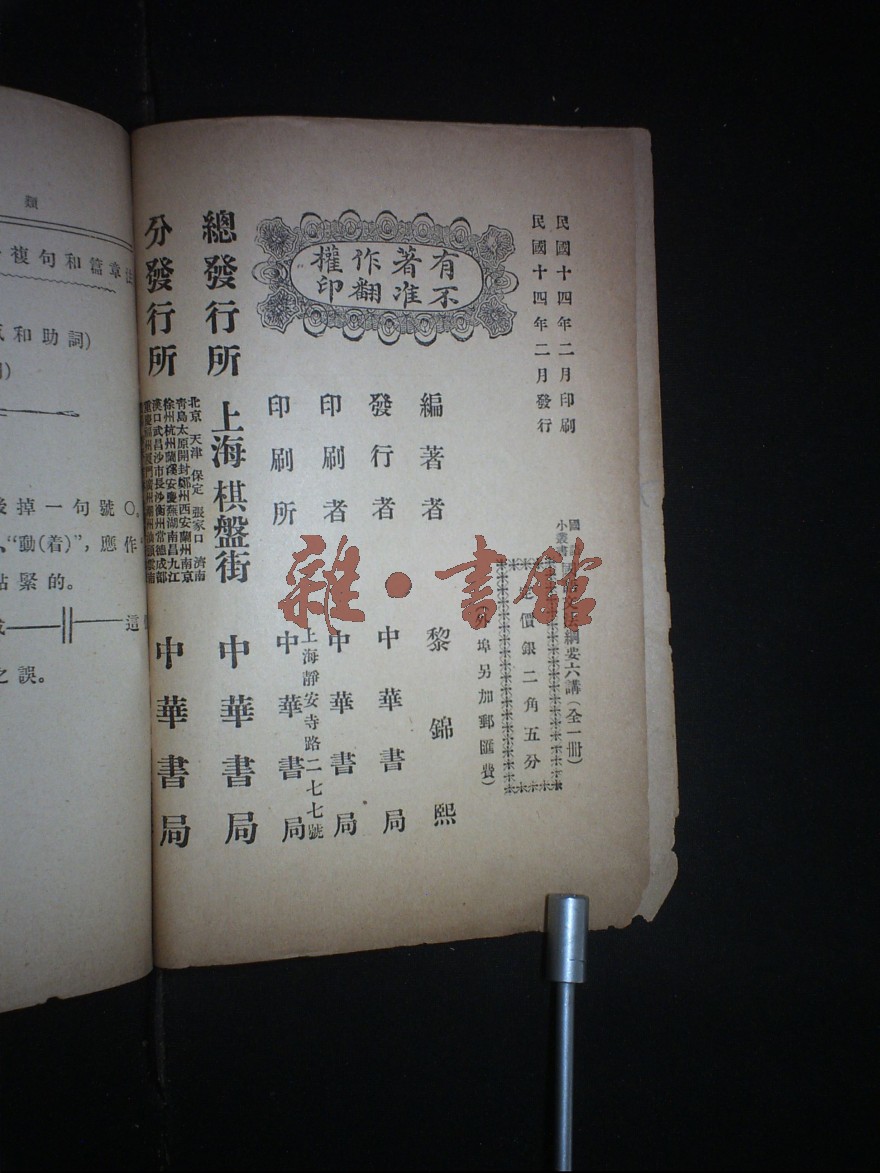 民國十四年二月印刷
民國十四年二月發行
國語
小叢書
國語文法綱要六講(全一冊)
定價銀二角五分
外埠另加郵匯費)
有著作權
不准翻印
編著者 黎錦熙
發行者 中華書局
印刷者 中華書局
上海靜安寺路二七七號
印刷所 中華書局
總發行所 上海棋盤街 中華書局
北京 天津 保定 張家口 濟南
靑島太原開封鄭州西安蘭州南京
徐州杭州蘭谿安慶蕪湖南昌九江
漢口武昌沙市長沙衡州常德成都
分發行所 中華書局
類
複句和篇章法
和助詞)
掉一句號○。
“動(着)”,應作
緊的。
這
之誤。
雜·書館